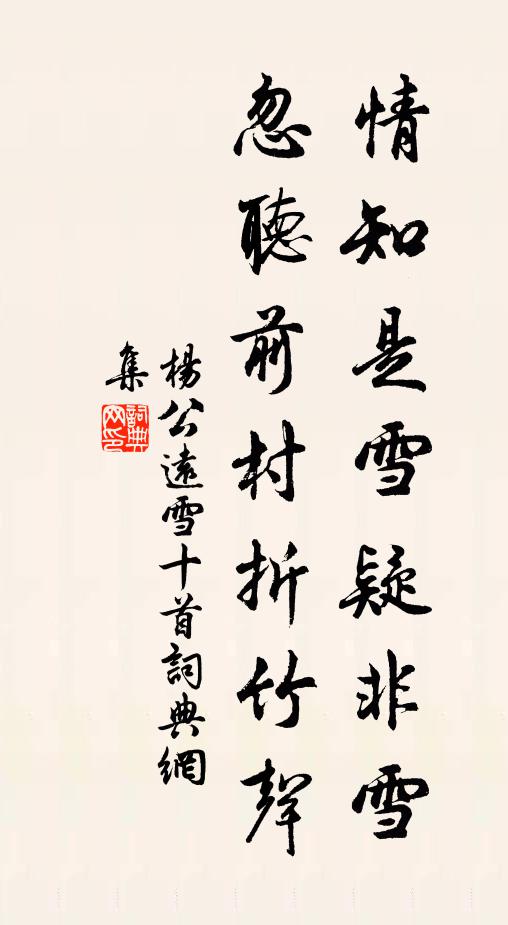 情知是雪疑非雪
忽聽前村折竹聲
楊公遠雪十首詞典網
集
詞典网印